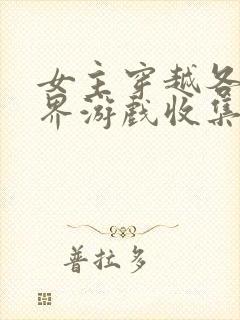 女主穿越各
界游戏收集
普拉多